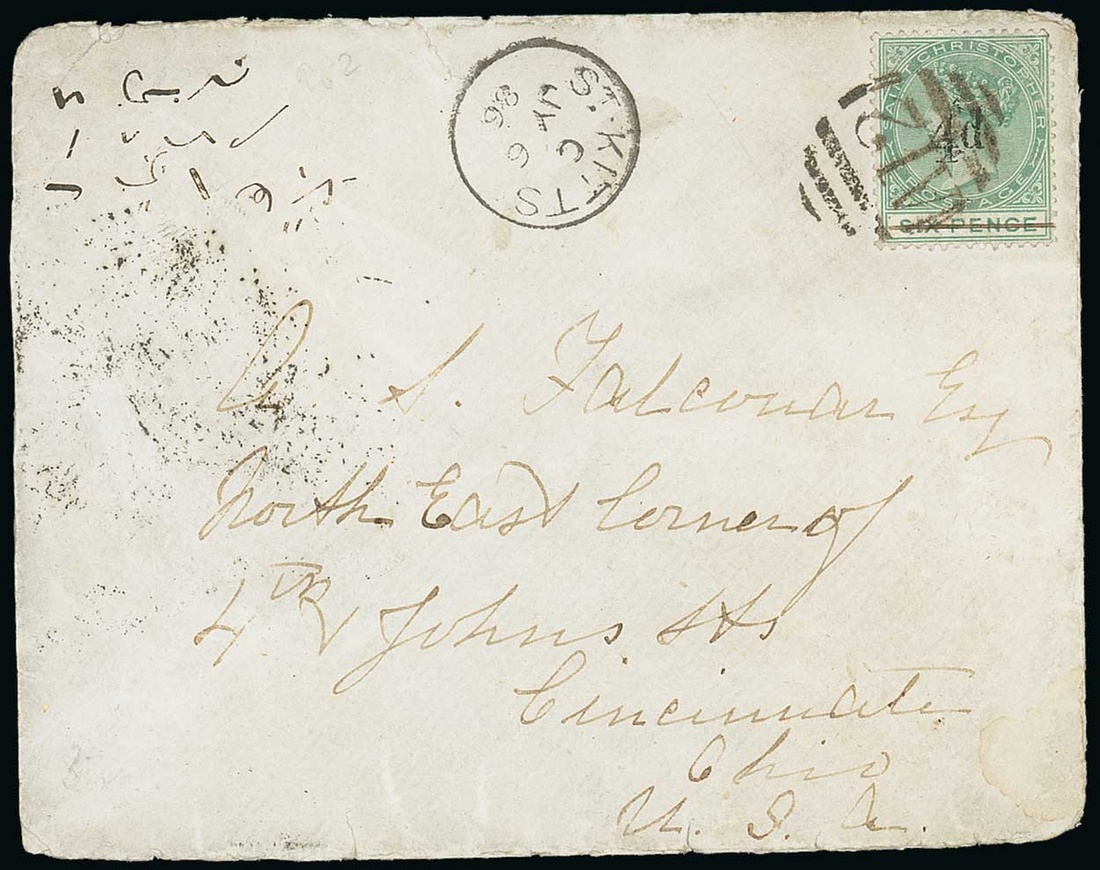 ST. KITTS
C
MY 6
86
SAINT CHRISTOPHER
4d.
POSTAGE
SIX PENCE
A12
A. S. Falconar Esq
North East Corner of
4th & Johns Sts
Cincinnati
Ohio
U. S. A.